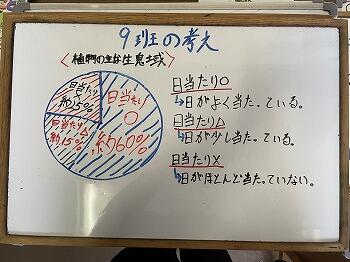 9班の考え
〈植物の主な生息域〉
日当たり
○
約60%
日当たり△
約15%
日当たり
約15%
日当たり○
↳日がよく当たっている。
日当たり△
↳日が少し当たっている。
日当たり×
↳日がほとんど当たっていない。